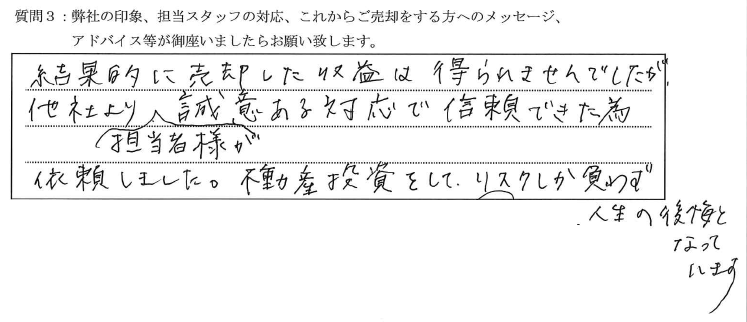 質問３：弊社の印象、担当スタッフの対応、これからご売却をする方へのメッセージ、
アドバイス等が御座いましたらお願い致します。
結果的に売却した収益は得られませんでしたが
他社より、誠意ある対応で信頼できた為
担当者様が
依頼しました。不動産投資をして、リスクしか負わず
人生の後悔と
なって
います